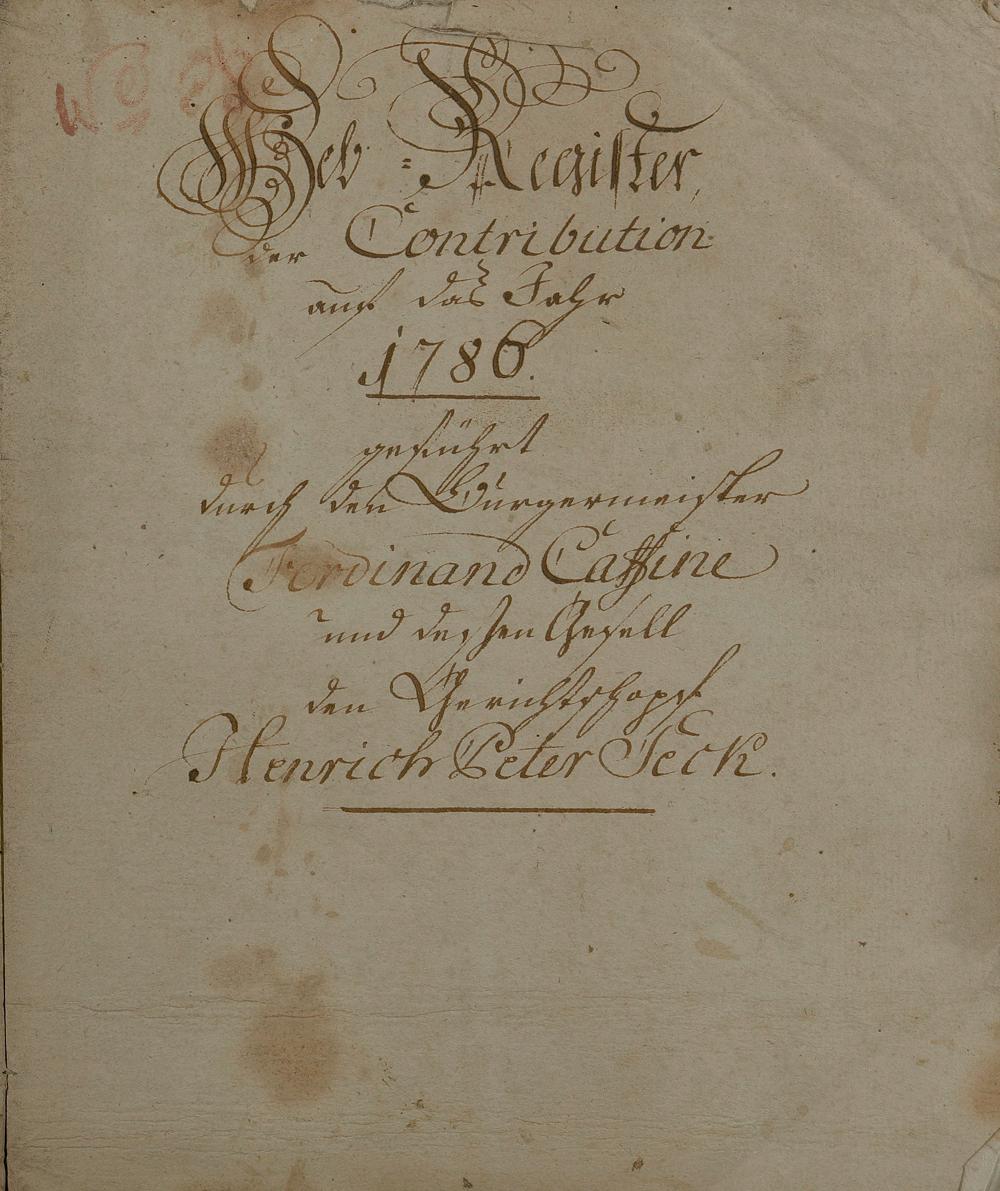 Heb-Register,
der Contribution
auf das Jahr
1786.
geführt
durch den Bürgermeister
Ferdinand Caßine
und deßen Gesell
den Gerichtschöpf
Henrich Peter Jeck.